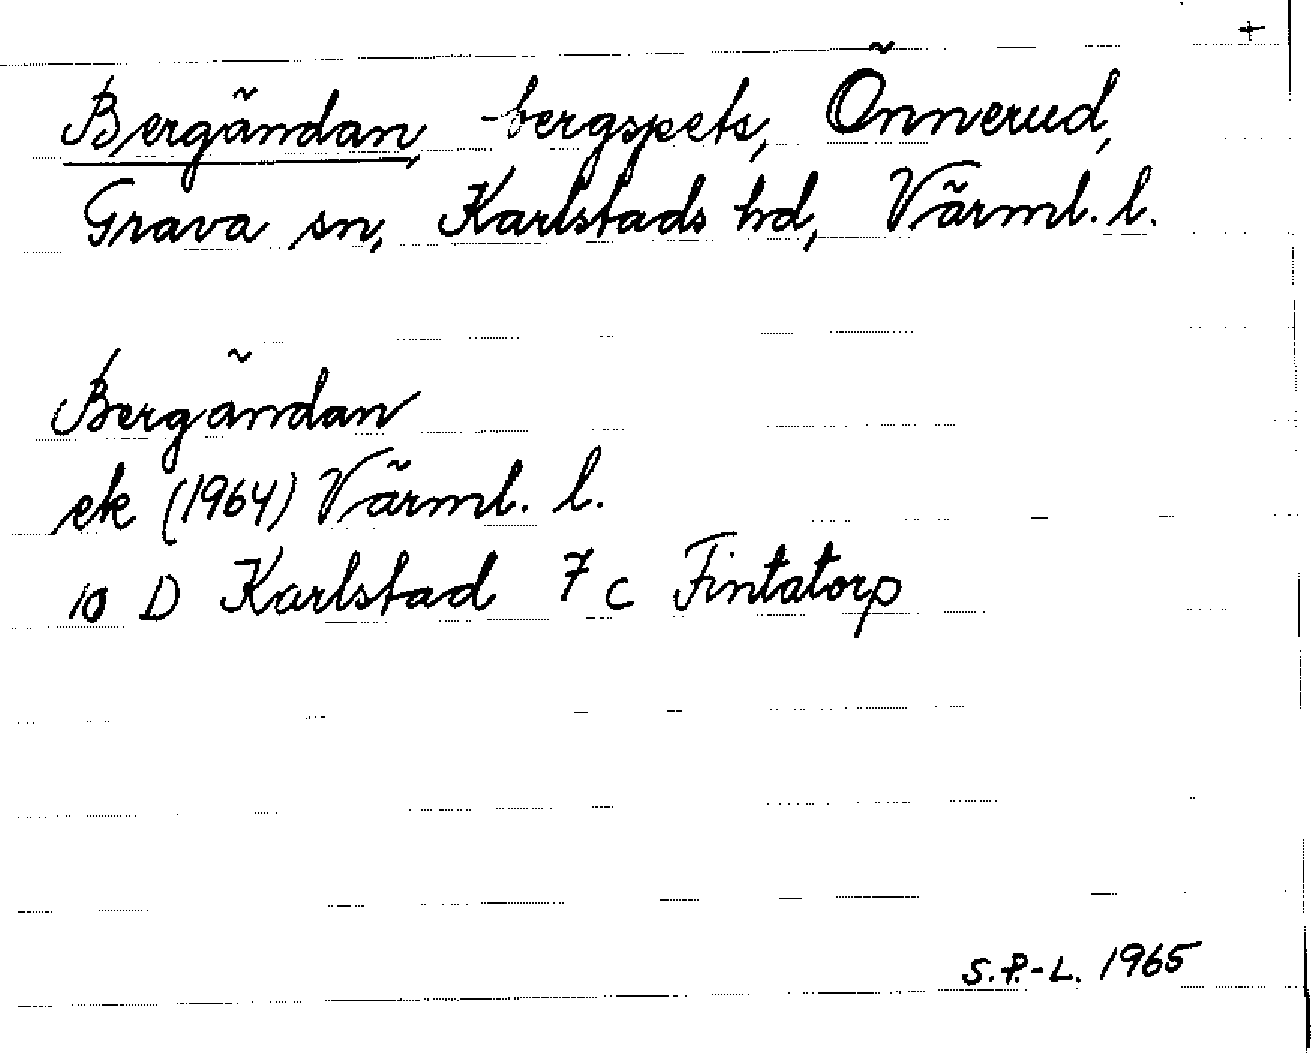 +
Bergändan, bergspets, Önnerud,
Grava sn, Karlstads hd, Värml. l.
Bergändan
ek (1964) Värml. l.
10 D Karlstad 7 c Fintatorp
S.P.-L. 1965